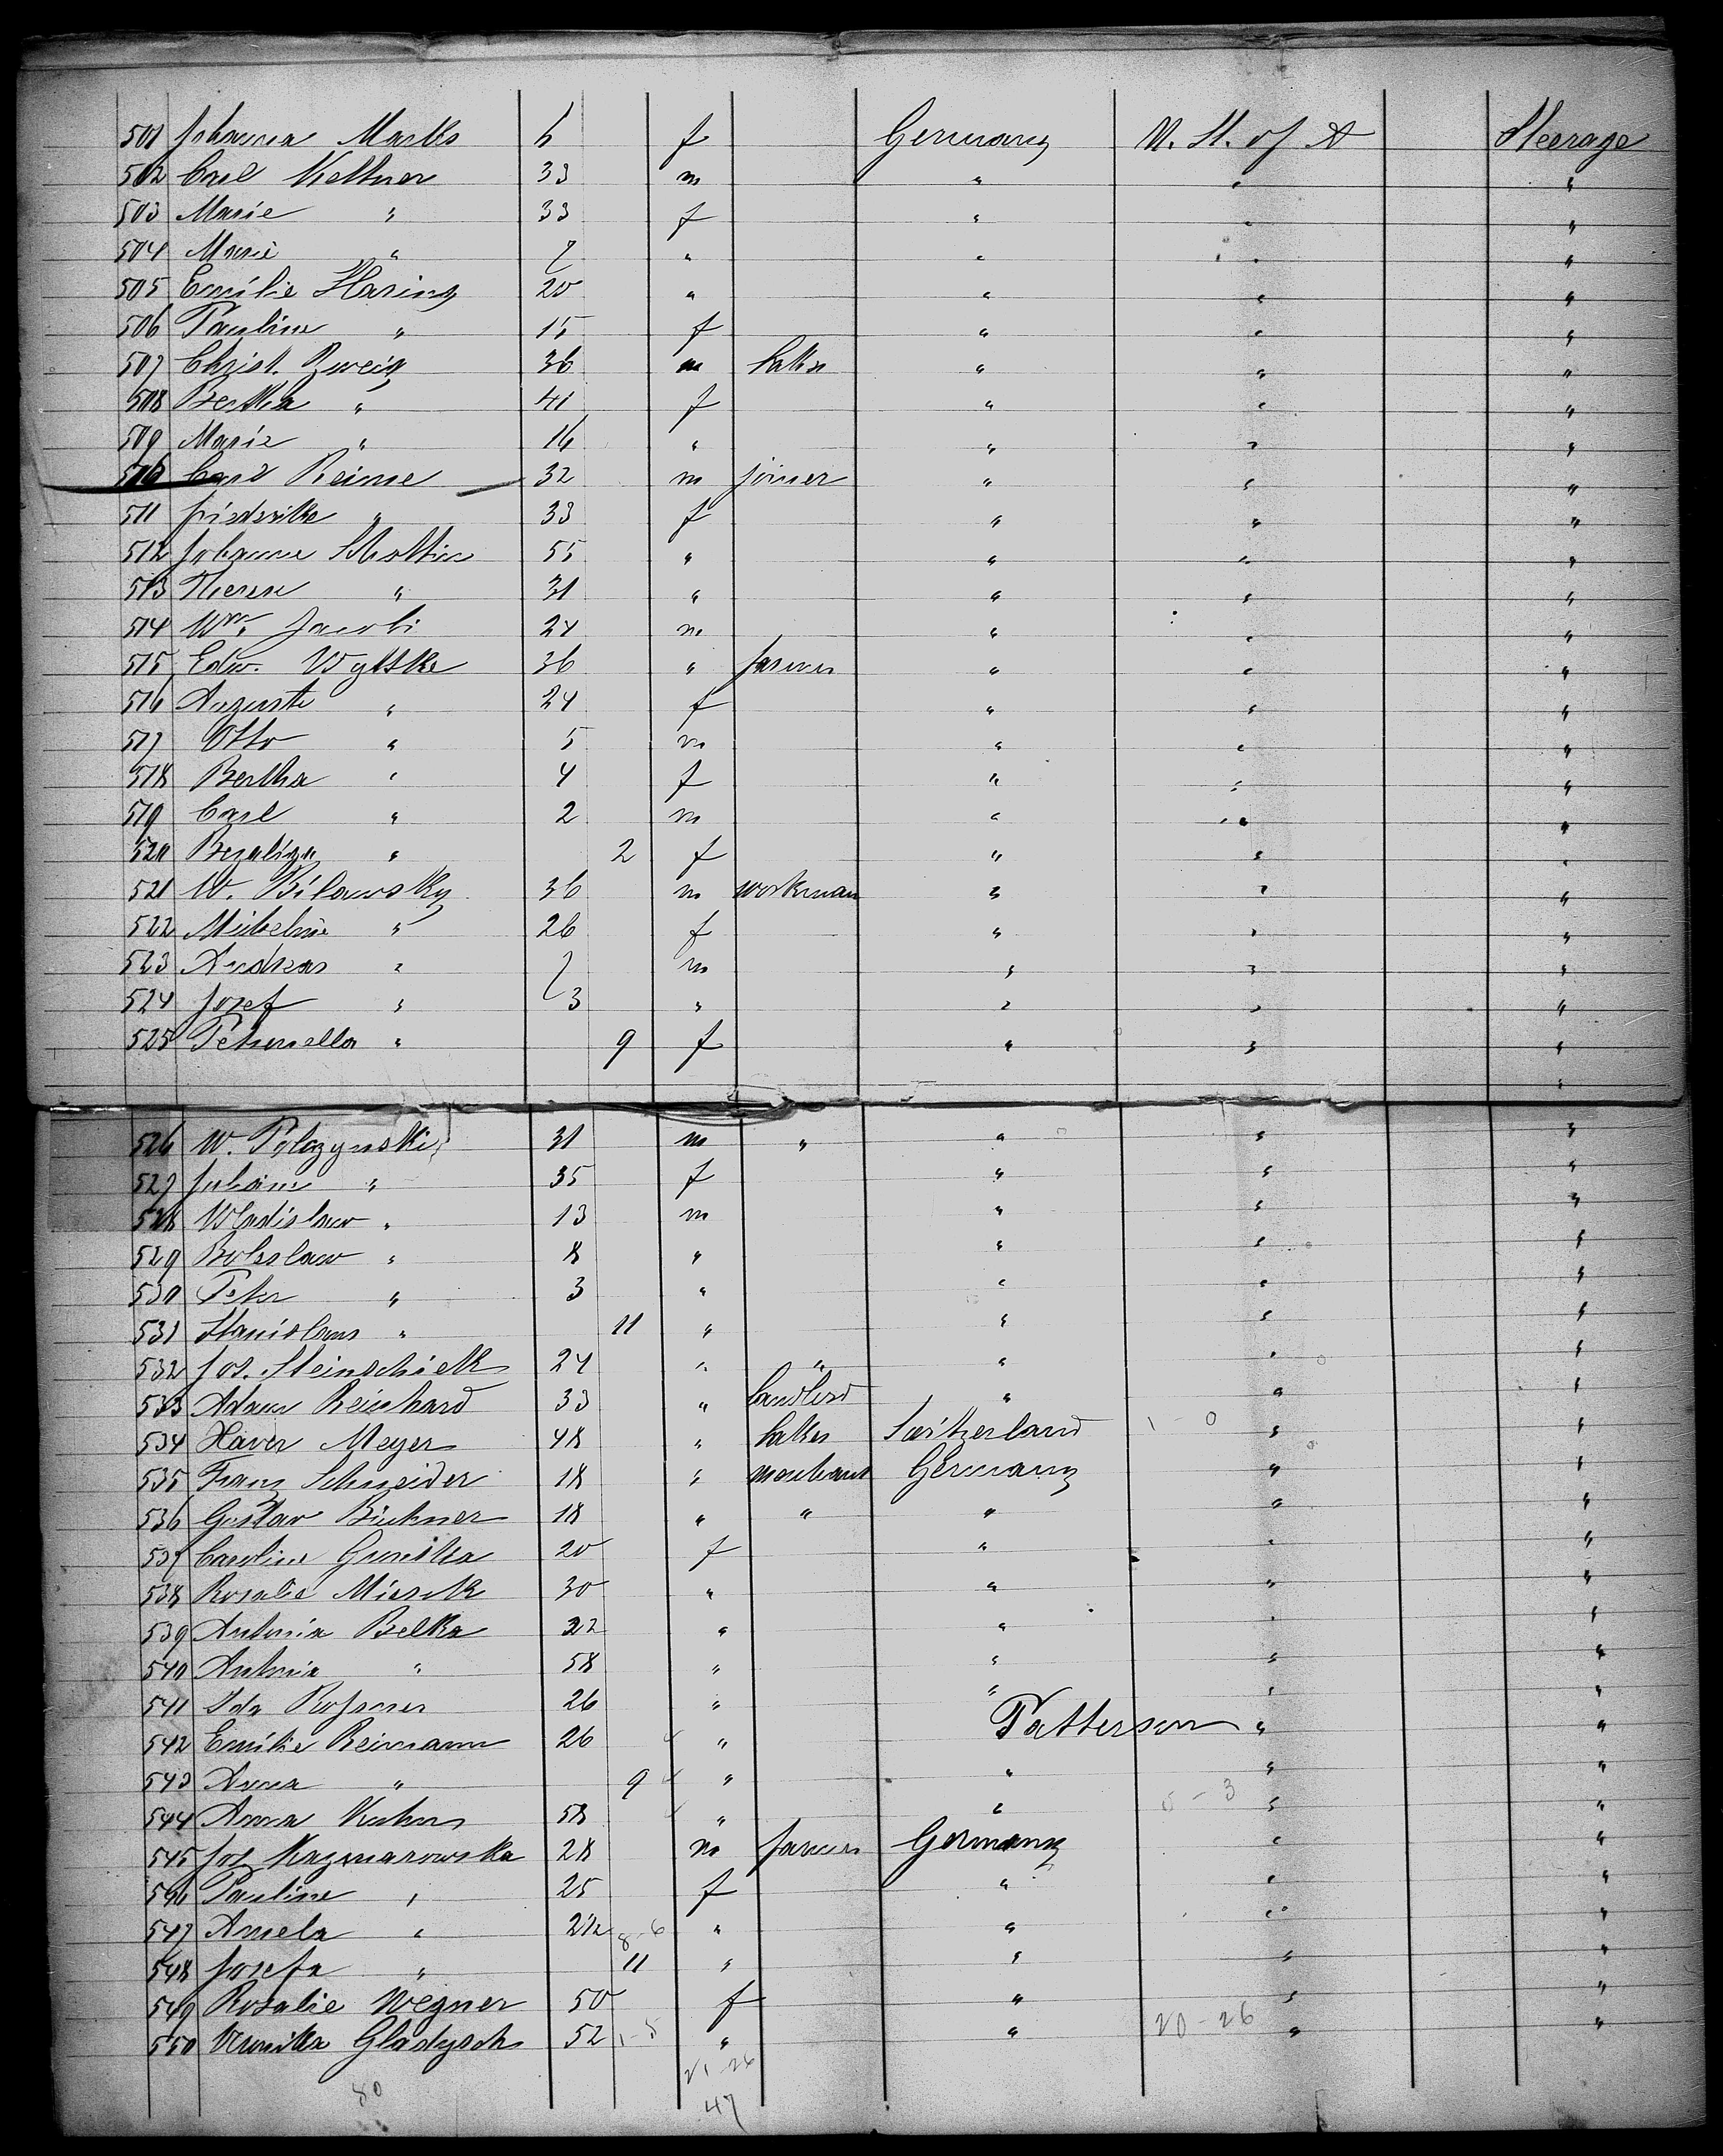 501 Johanna Marks 6 f Germany U. St. of A Steerage
502 Carl Kettner 33 m " " "
503 Marie " 33 f " " "
504 Marie " 7 " " " "
505 Emilie Haring 20 " " " "
506 Pauline " 15 f " " "
507 Christ. Zweig 36 m " " "
508 Bertha " 41 f " " "
509 Marie " 16 " " " "
510 Carl Reime 32 m joiner " " "
511 Friedrike " 33 f " " "
512 Johanne 55 " " " "
513 Therese " 31 " " " "
514 Wm. Jacobi 24 m " " "
515 Edw. Wyttke 36 " farmer " " "
516 Auguste " 24 f " " "
517 Otto " 5 m " " "
518 Bertha " 4 f " " "
519 Carl " 2 m " " "
520 " 2 f " " "
521 W. Bilawsky 36 m workman " " "
522 " 26 f " " "
523 Andreas " 7 m " " "
524 Josef " 3 " " " "
525 Petronella " 9 f " " "
"
526 W. Polczynski 31 m " " " "
527 " 35 f " " "
528 Wladislaw " 13 m " " "
529 Boleslaw " 8 " " " "
530 Peter " 3 " " " "
531 Stanislaus " 11 " " " "
532 Jos. 24 " " " " "
533 Adam Reinhard 33 " landlord " " "
534 Xaver Meyer 48 " Switzerland 1 - 0 " "
535 Franz Schneider 18 " merchant Germany " "
536 Gustav Büchner 18 " " " " "
537 Caroline 20 f " " "
538 Rosalie 30 " " " "
539 Antonia Belka 22 " " " "
540 Antonia " 58 " " " "
541 Ida 26 " " " "
542 Emilie Reimann 26 " Patterson " "
543 Anna " 9 " " " "
544 Anna Kuhn 58 " " 5 - 3 " "
545 Jos. Kazmarowska 28 m farmer Germany " "
546 Pauline " 25 f " " "
547 Amela " 2 1/2 8-6 " " " "
548 Josefa " 11 " " " "
549 Rosalie Wegner 50 f " " "
550 Veronika Gladysch 52 1-5 " " 20 - 26 " "
80 21-26
47